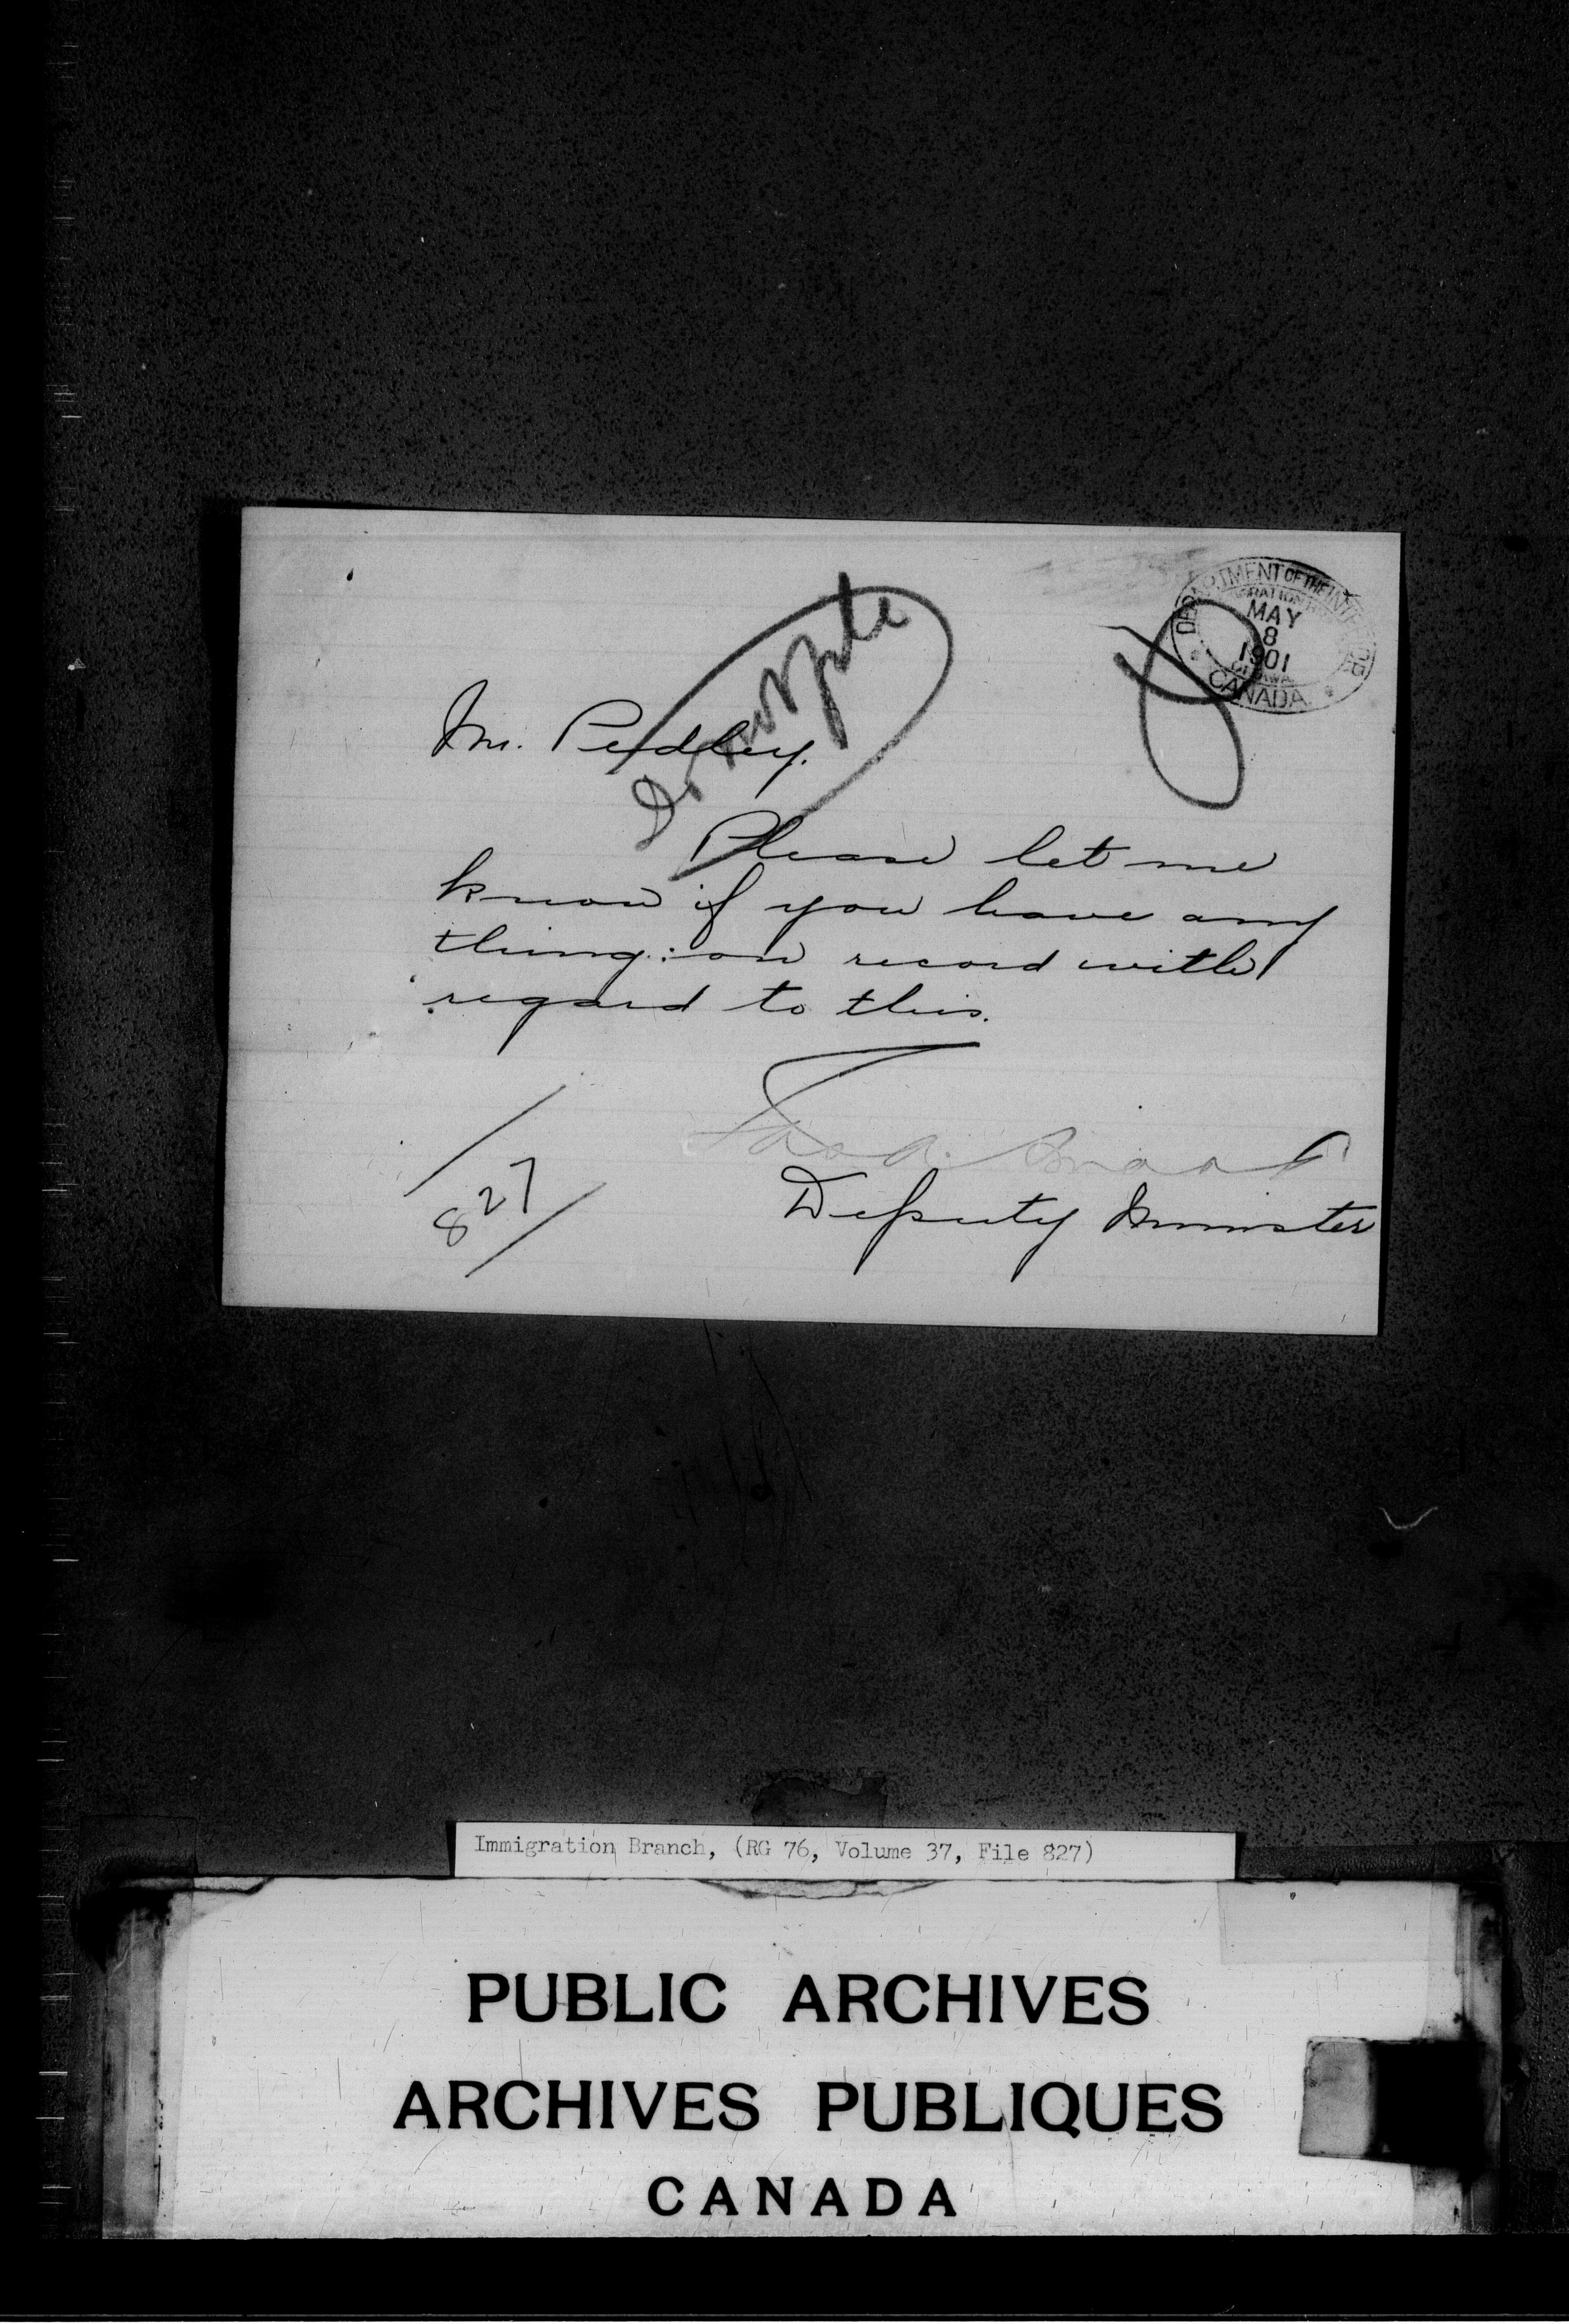 DEPARTMENT OF THE INTERIOR
MAY
8
1901
OTTAWA
CANADA
Mr. Pedley.
Please let me
know if you have any
thing on record with
regard to this.
Deputy Minister
827
Immigration Branch, (RG 76, Volume 37, File 827)
PUBLIC ARCHIVES
ARCHIVES PUBLIQUES
CANADA